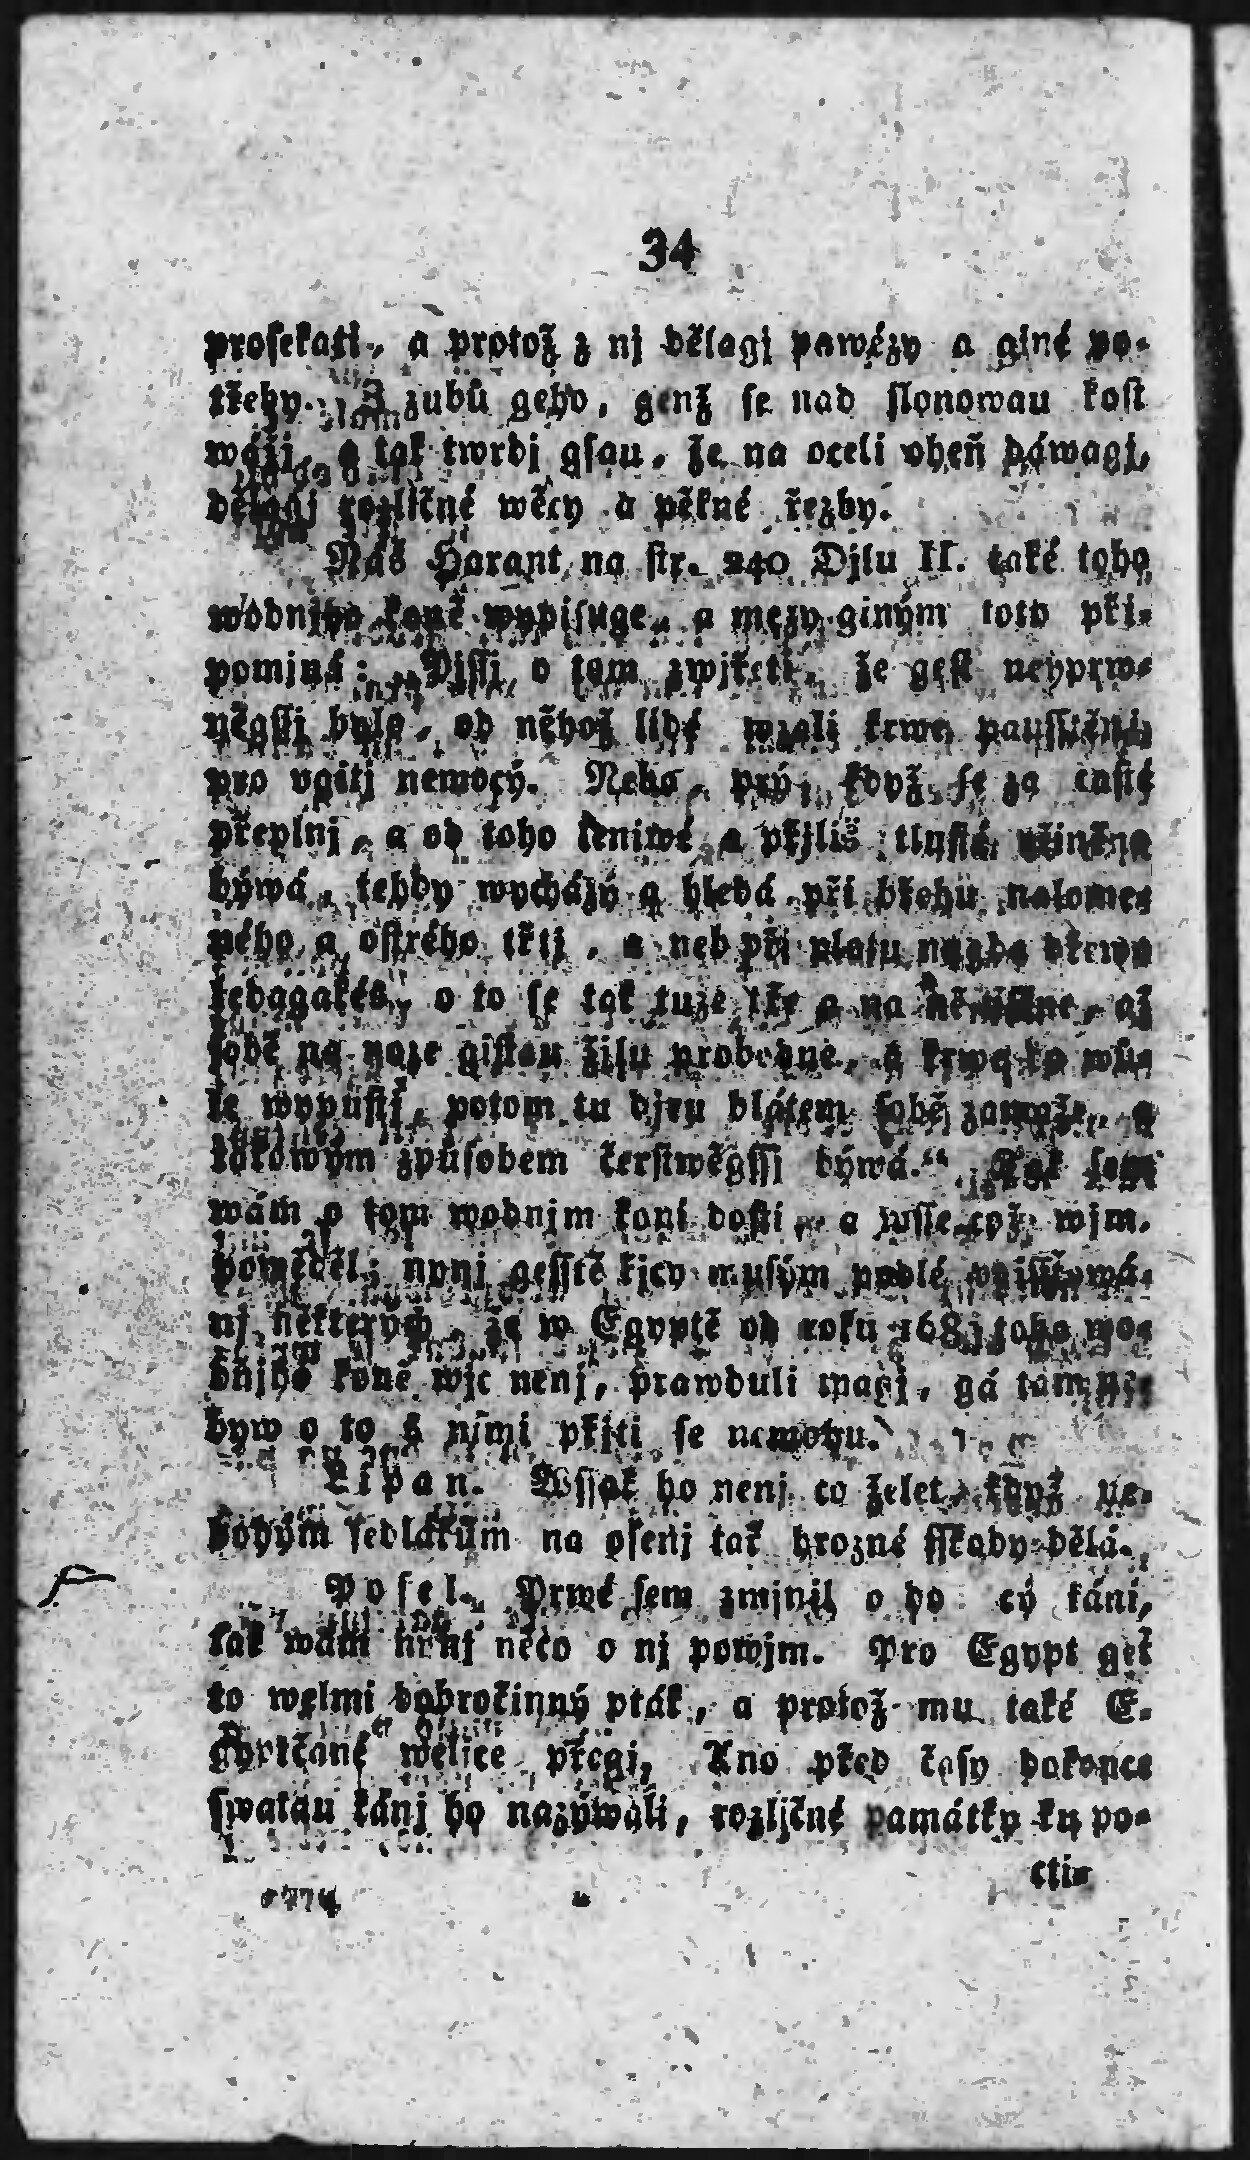 34
prosekati, a protož z nj dělagj pawézy a giné po-
třeby. Z zubů geho, genž se nad slonowau kost
wážj, a tak twrdj gsau, že na oceli oheň dáwagj,
dělagj rozličné wěcy a pěkné řezby.
Náš Harant na str. 240 Djlu II. také toho
wodnjho koně wypisuge, a mezy giným toto při-
pomjná: Pjssj o tom zwjřeti, že gest neyprw-
něgssj bylo, od něhož lidé wzali krwe paussténj,
pro vgitj nemocý. Nebo, prý, když se za časté
přeplnj, a od toho leniwé a přjliš tlusté včiněno
býwá, tehdy wycházý a hledá při břehu nalome-
ného a ostrého třtj, a neb při plotu dřewa
ledagakés, o to se tak tuze tře a na ně, až
sobě na noze gistau žilu probodne, a krwe ko wů-
le wypustj, potom tu djru blátem sobě zamaže, a
takowým způsobem čerstwěgssj býwá.“ Tak sem
wám o tom wodnjm koni dosti, a wsse což wjm,
pověděl; nynj gesstě řjcy musým podlé vgisstowá-
nj některých, že w Egyptě od roku 1681 toho wo-
dnjho koně wjc nenj, prawduli magj, gá tam ne-
byw o to s nimi přjti se nemohu.
Lipan. Wssak ho nenj co želet, když ne-
bohým sedlákům na osenj tak hrozné sskody dělá.
Posel. Prwé sem zmjnil o cý káni,
tak wám nynj něco o nj powjm. Pro Egypt gest
to welmi dobročinný pták, a protož mu také E-
gyptčané welice přegj, Ano před časy dokonce
swatau kánj ho nazýwali, rozljčné památky ku po-
cti-